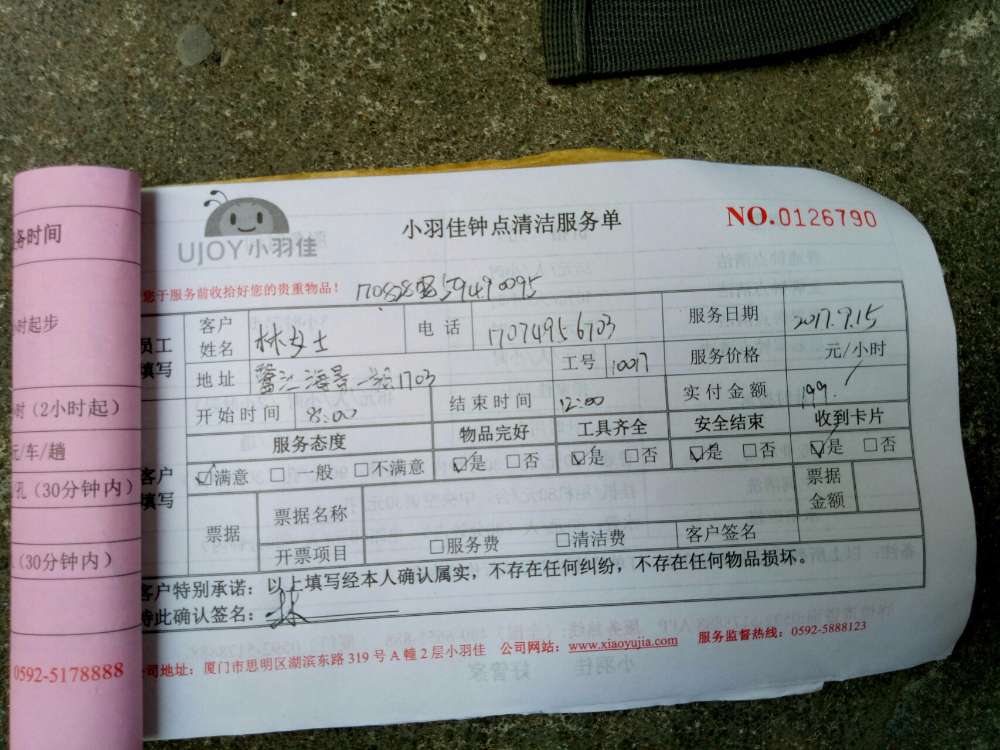 UJOY小羽佳
小羽佳钟点清洁服务单
NO.0126790
您于服务前收拾好您的贵重物品!
员工
填写
客户
姓名
林女士
电 话
17074956703
服务日期
2017.7.15
地 址
鹭江海景一号1703
工号
10017
服务价格
元/小时
开始时间
8:00
结束时间
12:00
实付金额
199
服务态度
物品完好
工具齐全
安全结束
收到卡片
客户
填写
☑满意 □一般 □不满意
☑是 □否
☑是 □否
☑是 □否
☑是 □否
票据
票据名称
票据
金额
开票项目
□服务费 □清洁费
客户签名
客户特别承诺:以上填写经本人确认属实,不存在任何纠纷,不存在任何物品损坏。
特此确认签名:林
公司地址:厦门市思明区湖滨东路 319 号 A 幢 2 层小羽佳 公司网站:www.xiaoyujia.com 服务监督热线:0592-5888123
务时间
小时起步
时(2小时起)
元/车/趟
孔(30分钟内)
(30分钟内)
0592-5178888